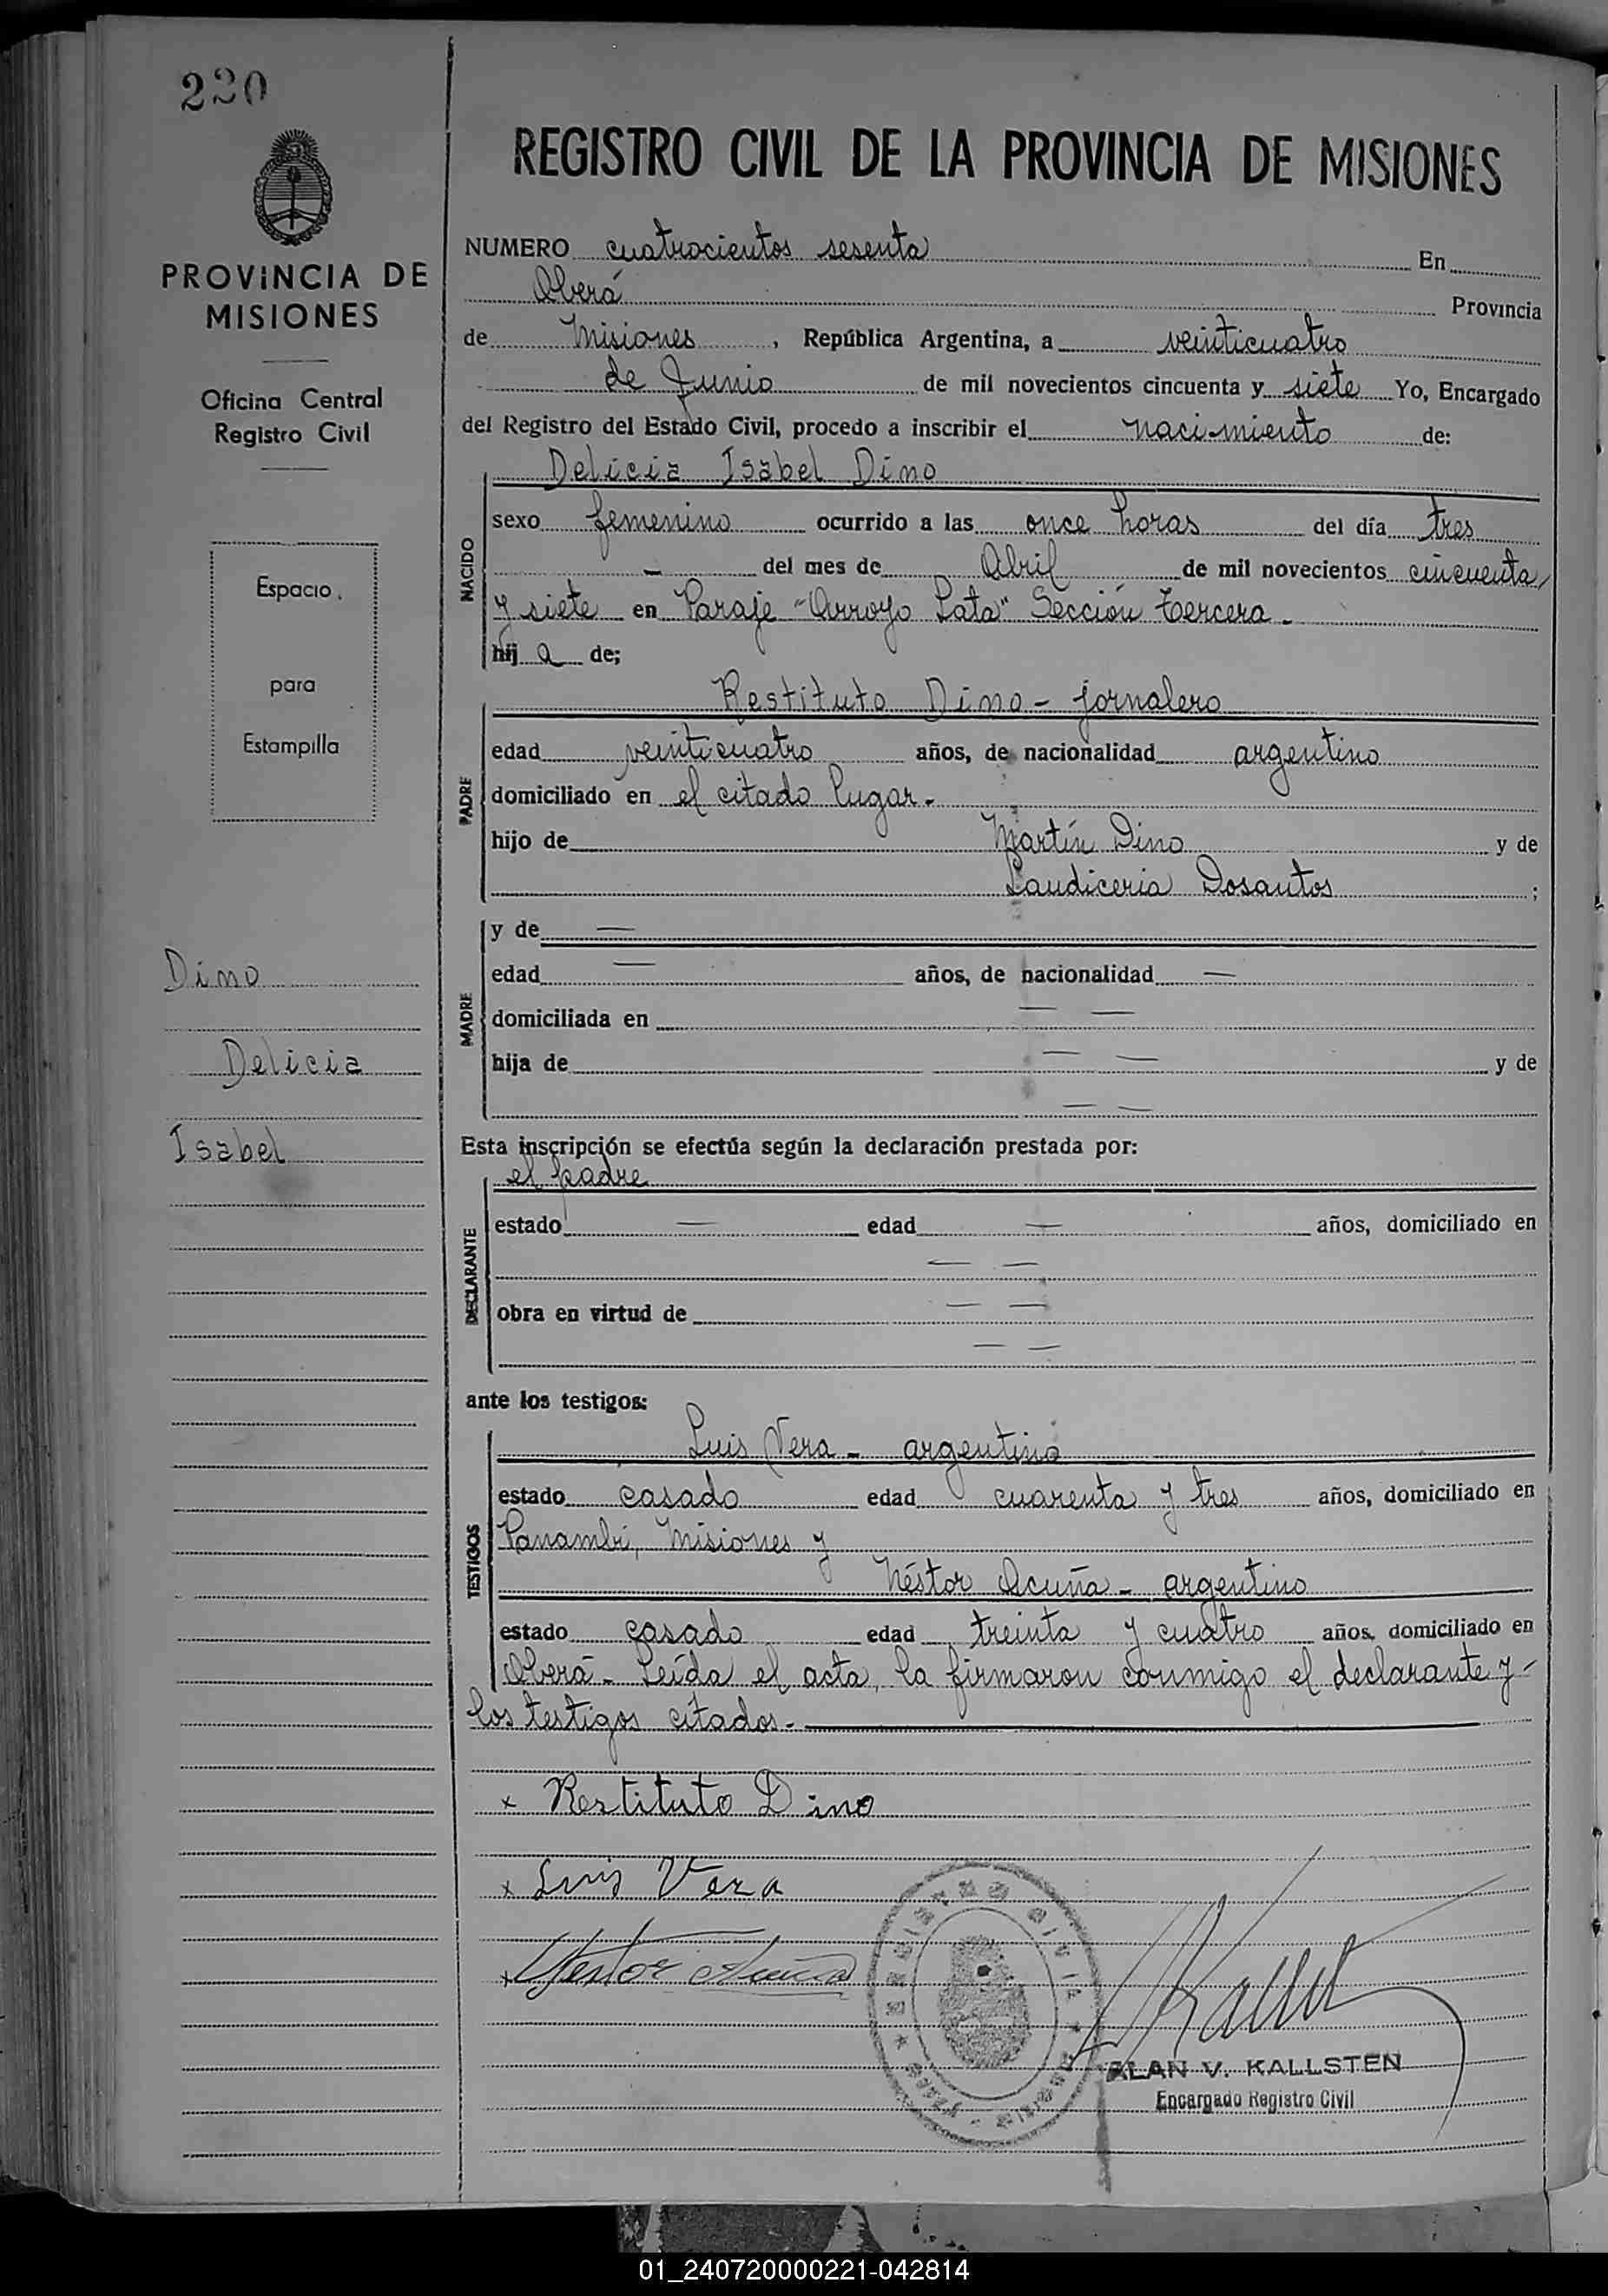 220
PROVINCIA DE
MISIONES
Oficina Central
Registro Civil
Espacio
para
Estampilla
Dino
Delicia
Isabel
REGISTRO CIVIL DE LA PROVINCIA DE MISIONES
NUMERO cuatrocientos sesenta En
Oberá Provincia
de Misiones, República Argentina, a veinticuatro
de Junio de mil novecientos cincuenta y siete Yo, Encargado
del Registro del Estado Civil, procedo a inscribir el nacimiento de:
Delicia Isabel Dino
NACIDO
sexo femenino ocurrido a las once horas del día tres
- del mes de Abril de mil novecientos cincuenta
y siete en Paraje "Arroyo Pata" Sección tercera.
hij a de;
Restituto Dino - jornalero
PADRE
edad veinticuatro años, de nacionalidad argentino
domiciliado en el citado lugar.
hijo de Martín Dino y de
Laudiceria Dosantos ;
MADRE
y de —
edad — años, de nacionalidad —
domiciliada en — —
hija de — — y de
— —
Esta inscripción se efectúa según la declaración prestada por:
el padre
DECLARANTE
estado — edad — años, domiciliado en
— —
obra en virtud de — —
— —
ante los testigos:
Luis Vera - argentino
TESTIGOS
estado casado edad cuarenta y tres años, domiciliado en
Panambí, Misiones y
Néstor Acuña - argentino
estado casado edad treinta y cuatro años, domiciliado en
Oberá - Leída el acta, la firmaron conmigo el declarante y -
los testigos citados. -
x Restituto Dino
x Luis Vera
x Nestor Acuña
Kallsten
ALAN V. KALLSTEN
Encargado Registro Civil
01_240720000221-042814